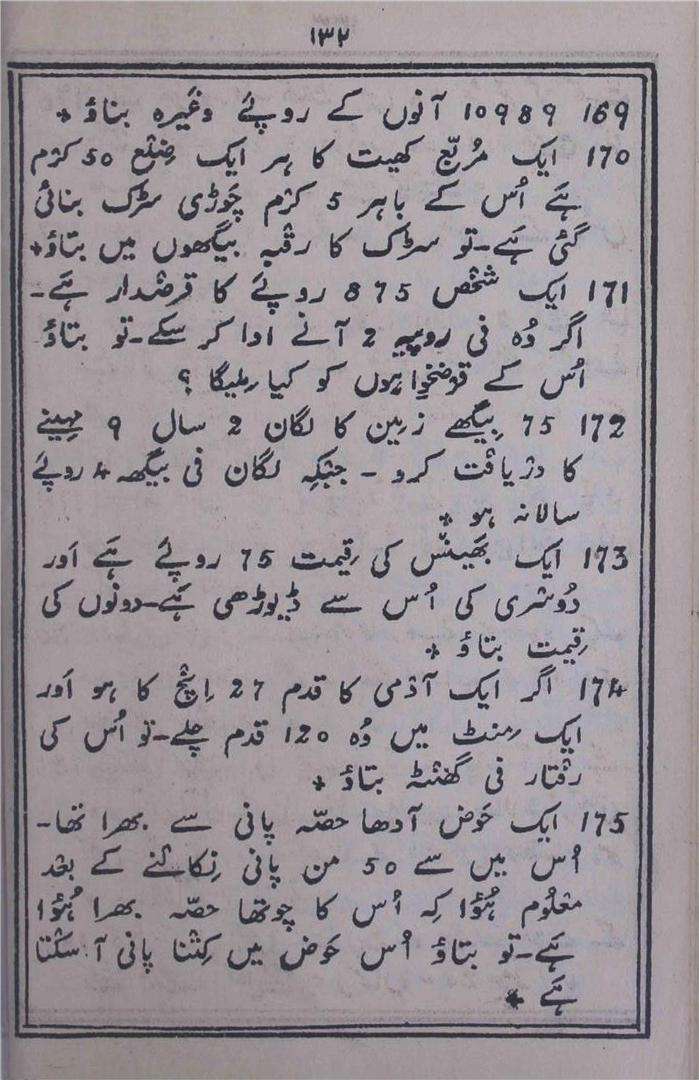 ۱۳۲
169 10989 آنوں کے روپئے وغیرہ بناؤ *
170 ایک مُربّع کھیت کا ہر ایک ضِلع 50 کرْم
ہَے اُس کے باہر 5 کرْم چَوڑی سڑک بنائی
گئی ہَے۔تو سڑک کا رقْبہ بیگھوں میں بتاؤ*
171 ایک شخْص 875 روپئے کا قرضْدار ہَے۔
اگر وُہ فی روپیہ 2 آنے ادا کر سکے۔تو بتاؤ
اُس کے قرضْخواہوں کو کیا مِلیگا ؟
172 75 بِیگھے زمِین کا لگان 2 سال 9 مہینے
کا درْیافْت کرو ۔ جبْکِہ لگان فی بیگھہ 4 روپئے
سالانہ ہو *
173 ایک بھَینْس کی قِیمت 75 روپئے ہَے اَور
دُوسْری کی اُس سے ڈیوڑھی ہَے۔دونوں کی
قِیمت بتاؤ *
174 اگر ایک آدْمی کا قدم 27 اِنْچ کا ہو اَور
ایک مِنٹ میں وُہ 120 قدم چلے۔تو اُس کی
رفْتار فی گھنْٹہ بتاؤ *
175 ایک حَوض آدھا حصّہ پانی سے بھرا تھا۔
اُس میں سے 50 من پانی نِکالْنے کے بعْد
معْلُوم ہُؤا کِہ اُس کا چوتھا حصّہ بھرا ہُؤا
ہَے۔تو بتاؤ اُس حَوض میں کِتْنا پانی آ سکْتا
ہَے *